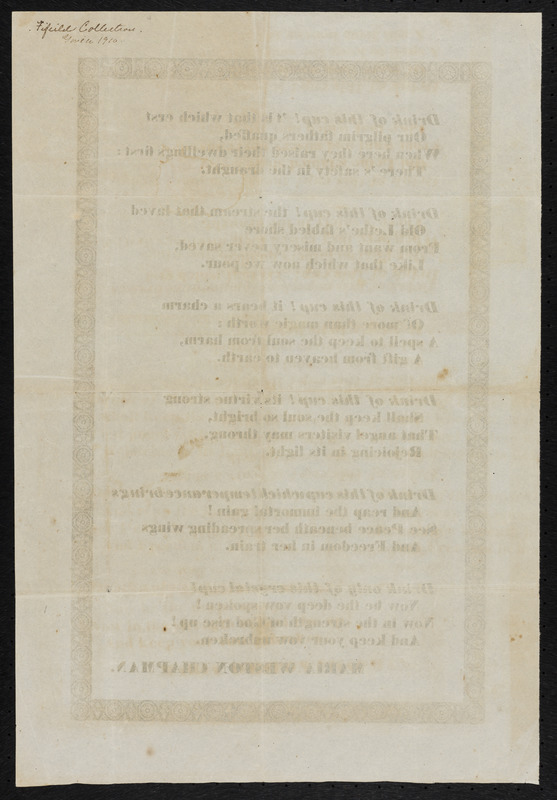 Fifield Collection.
1920
Drink of this cup! 't is that which erst
Our pilgrim fathers quaffed,
When here they raised their dwellings first:
There's safety in the draught.
Drink of this cup! the stream that laved
Old Lethe's fabled shore
From want and misery never saved,
Like that which now we pour.
Drink of this cup! it bears a charm
Of more than magic worth:
A spell to keep the soul from harm,
A gift from heaven to earth.
Drink of this cup! its virtue strong
Shall keep the soul so bright,
That angel visiters may throng,
Rejoicing in its light.
Drink of this cup which temperance brings
And reap the immortal gain!
See Peace beneath her spreading wings
And Freedom in her train.
Drink only of this crystal cup!
Now be the deep vow spoken!
Now in the strength of God rise up!
And keep your vow unbroken.
MARIA WESTON CHAPMAN.